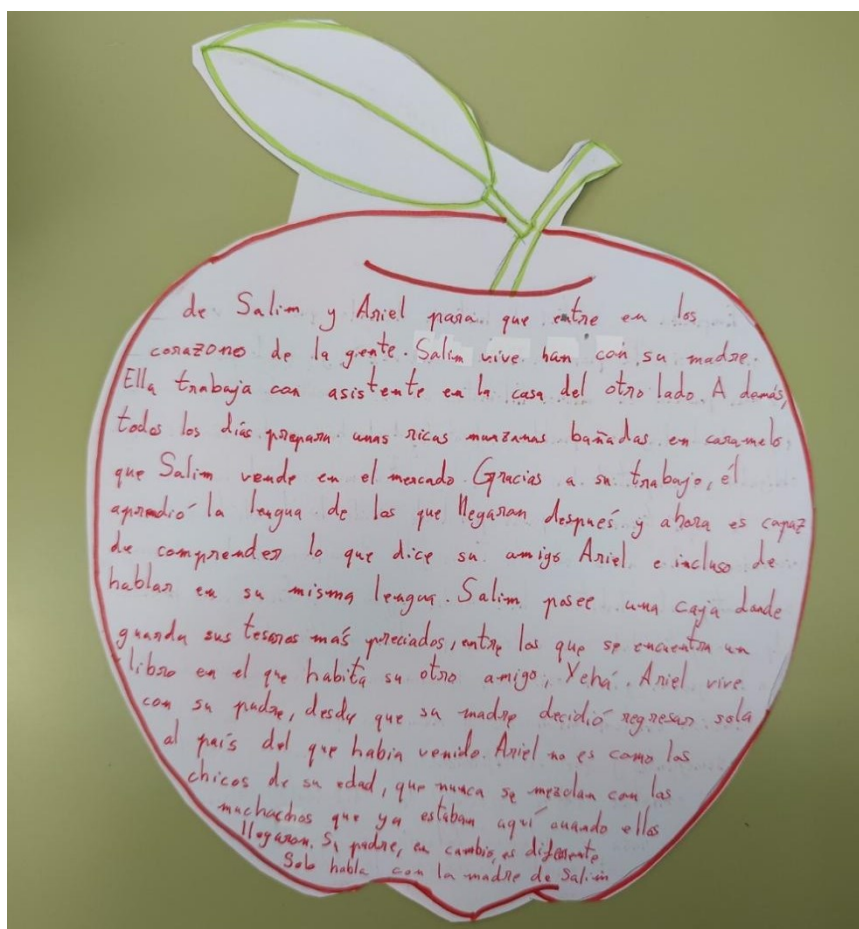 de Salim y Ariel para que entre en los
corazono de la gente. Salim vive han con su madre.
Ella trabaja con asistente en la casa del otro lado. A demás,
todos los días prepara unas ricas manzanas bañadas en caramelo
que Salim vende en el mercado. Gracias a su trabajo, él
aprendió la lengua de los que llegaron después y ahora es capaz
de comprender lo que dice su amigo Ariel e incluso de
hablar en su misma lengua. Salim posee una caja donde
guarda sus tesoros más preciados, entre los que se encuentra un
libro en el que habita su otro amigo, Yehá. Ariel vive
con su padre, desde que su madre decidió regresar sola
al país del que había venido. Ariel no es como los
chicos de su edad, que nunca se mezclan con los
muchachos que ya estaban aquí cuando ellos
llegaron. Su padre, en cambio, es diferente.
Solo habla con la madre de Salim